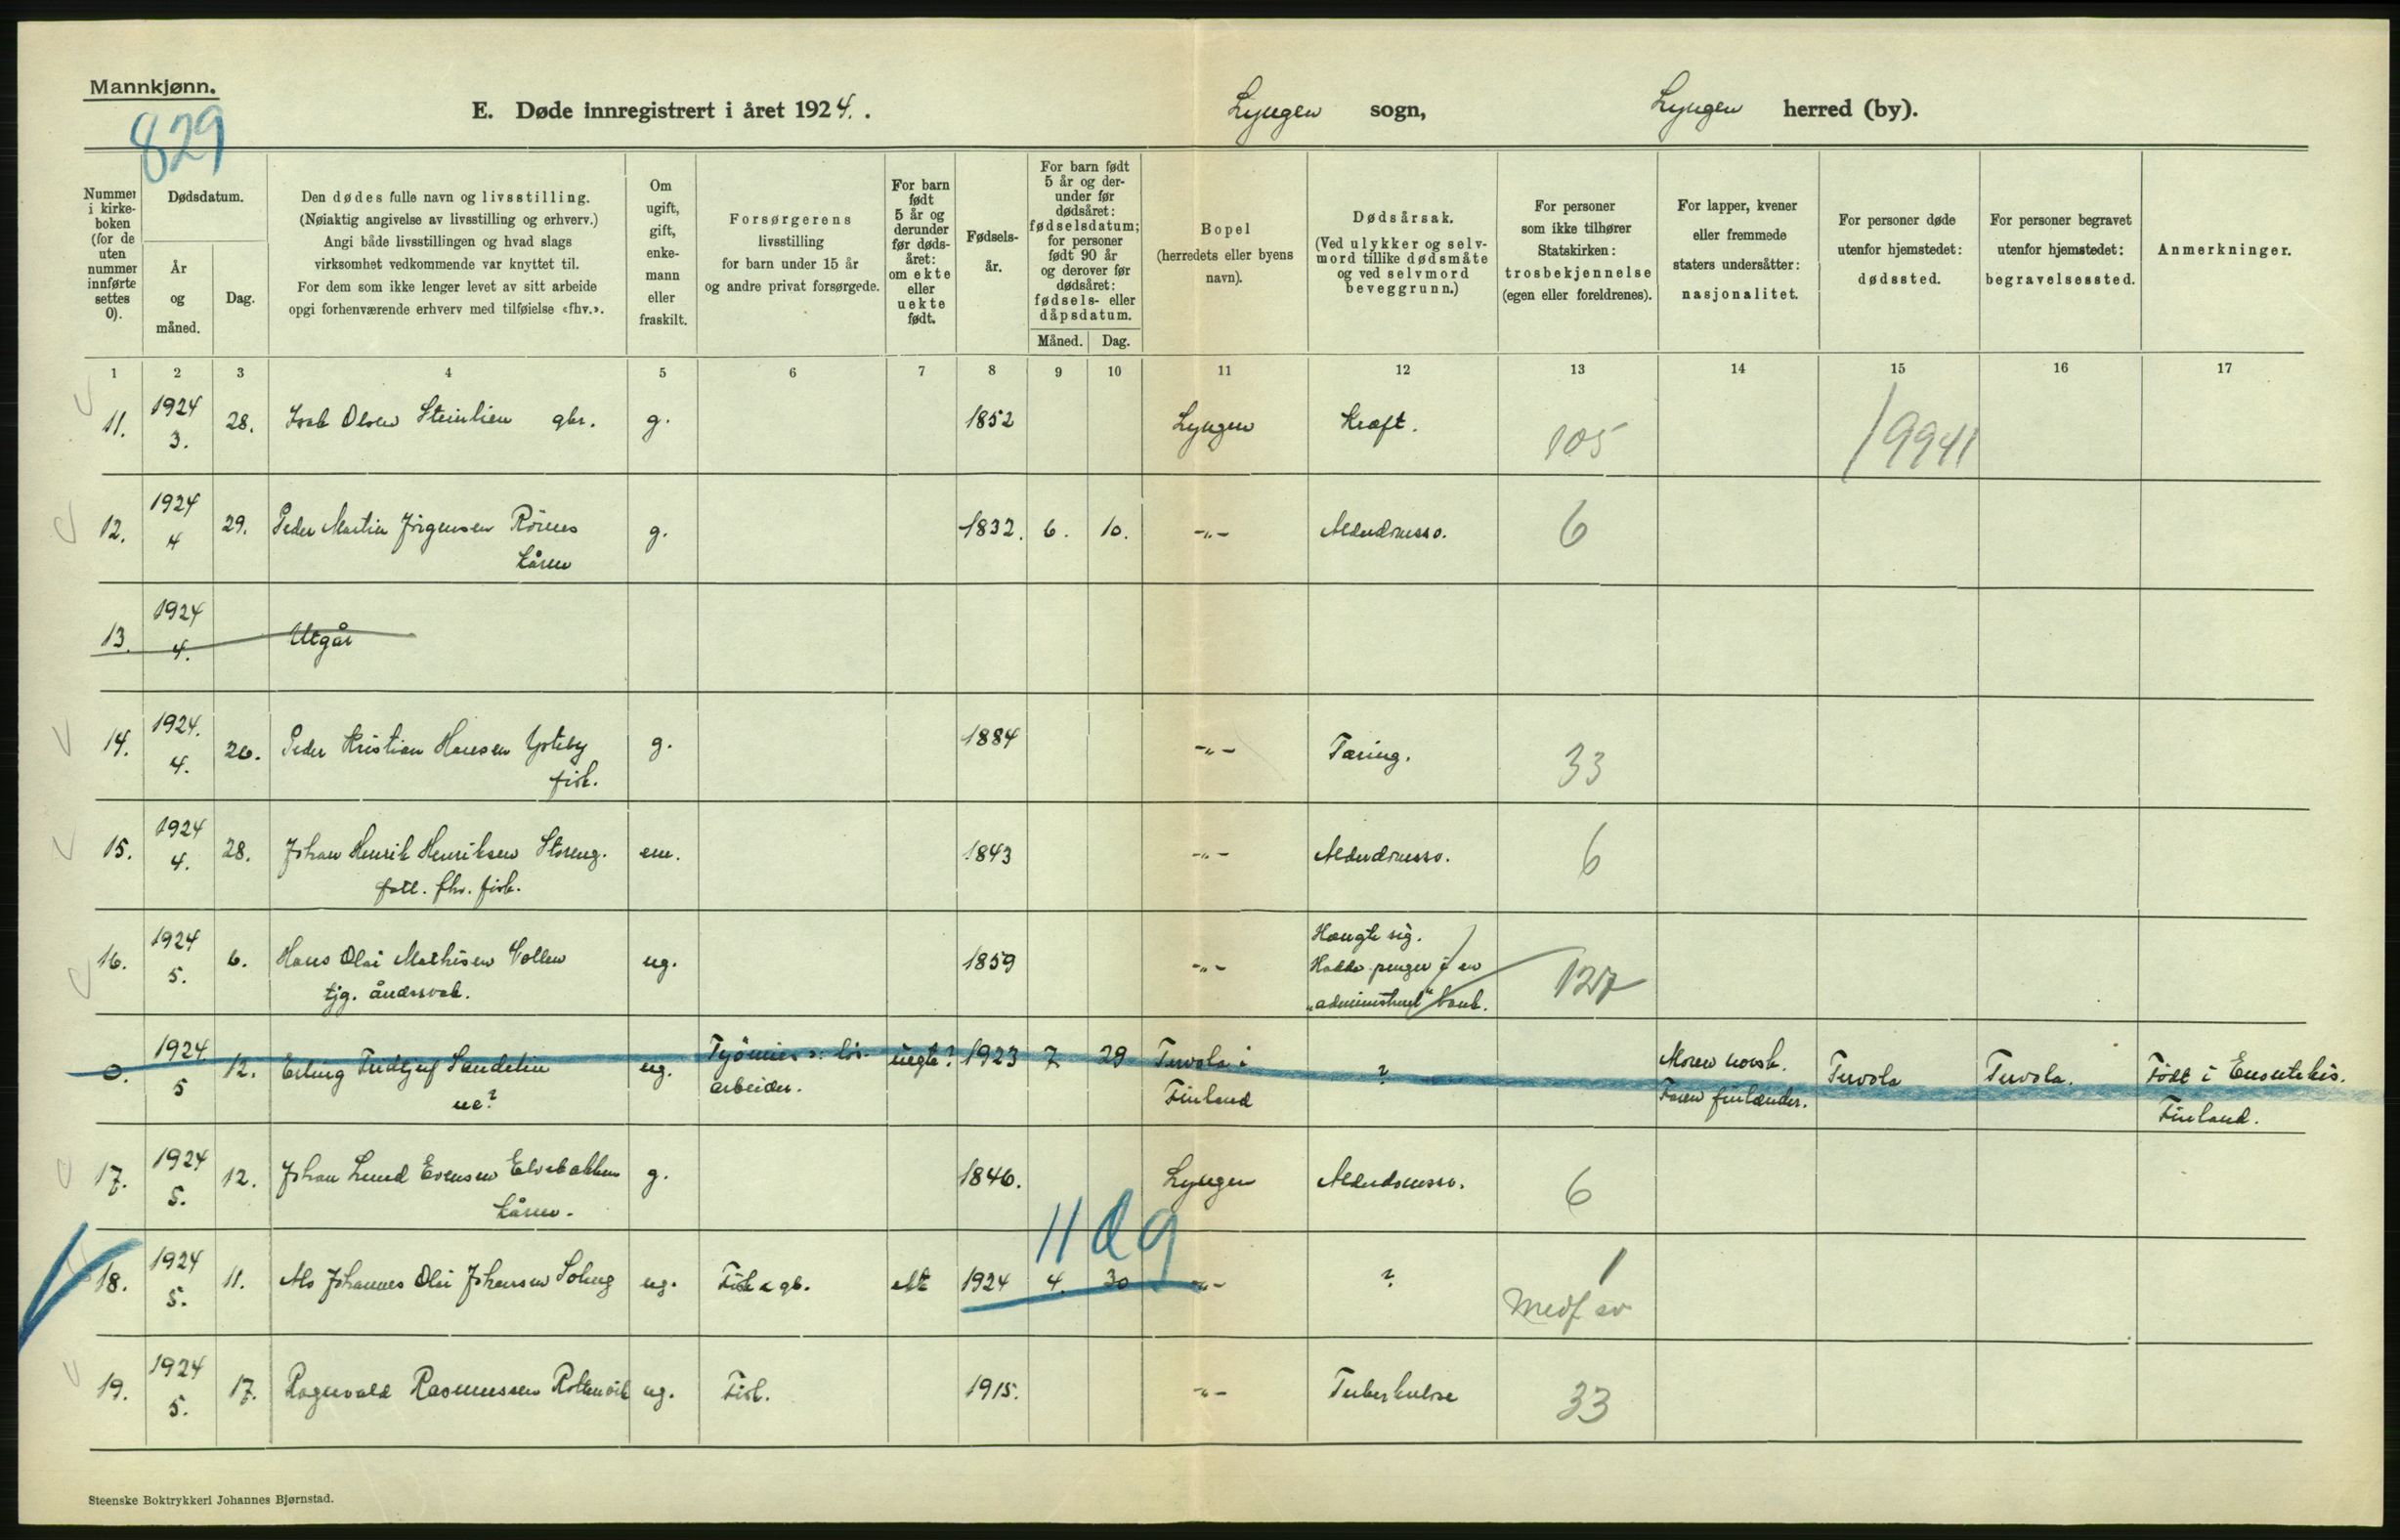 Mannkjønn.
829
E. Døde innregistrert i året 1924. .
Lyngen sogn,
Lyngen herred (by).
Nummer
i kirke-
boken
(for de
uten
nummer
innførte
settes
0).
Dødsdatum.
År
og
måned.
Dag.
Den dødes fulle navn og livsstilling.
(Nøiaktig angivelse av livsstilling og erhverv.)
Angi både livsstillingen og hvad slags
virksomhet vedkommende var knyttet til.
For dem som ikke lenger levet av sitt arbeide
opgi forhenværende erhverv med tilføielse «fhv.».
Om
ugift,
gift,
enke-
mann
eller
fraskilt.
Forsørgerens
livsstilling
for barn under 15 år
og andre privat forsørgede.
For barn
født
5 år og
derunder
før døds-
året:
om ekte
eller
uekte
født.
Fødsels-
år.
For barn født
5 år og der-
under før
dødsåret:
fødselsdatum;
for personer
født 90 år
og derover før
dødsåret:
fødsels- eller
dåpsdatum.
Måned. Dag.
Bopel
(herredets eller byens
navn).
Dødsårsak.
(Ved ulykker og selv-
mord tillike dødsmåte
og ved selvmord
beveggrunn.)
For personer
som ikke tilhører
Statskirken:
trosbekjennelse
(egen eller foreldrenes).
For lapper, kvener
eller fremmede
staters undersåtter:
nasjonalitet.
For personer døde
utenfor hjemstedet:
dødssted.
For personer begravet
utenfor hjemstedet:
begravelsessted.
Anmerkninger.
1 2 3 4 5 6 7 8 9 10 11 12 13 14 15 16 17
11. 1924 3. 28. Isak Olsen Steinlien gbr. g. 1852 Lyngen Kræft. 105 19941
12. 1924 4 29. Peder Martin Jörgensen Römes g. 1832. 6. 10. -"- Alderdomssv. 6
kårm
13. 1924 4. Utgår
14. 1924. 4. 26. Peder Kristian Hansen Ysteby g. 1884 -"- Tæring. 33
fisk.
15. 1924 4. 28. Johan Henrik Henriksen Storeng. em. 1843 -"- Alderdomssv. 6
fatt. fhv. fisk.
16. 1924 5. 6. Hans Olai Mathisen Vollen ug. 1859 -"- Hængte sig.
Hadde penger i en
tjg. åndssvak. „administrert" bank. 127
0. 1924 5 12. Erling Fridtjof Sandelin ug. Työmies ɔ: lös- uegte? 1923 7 29 Tervola i ? Moren norsk. Tervola Tervola. Født i Enontekis.
ne? arbeider. Finland Faren finlænder. Finland.
17. 1924 5. 12. Johan Lund Evensen Elvebakken g. 1846. Lyngen Alderdomssv. 6
kårm.
11 d g
18. 1924 5. 11. Als Johannes Olai Johansen Soleng ug. Fisk & gb. ekte 1924 4. 30 -"- ? 1
Medf sv
19. 1924 5. 17. Ragnvald Rasmussen Rottenvik ug. Fisk. 1915. -"- Tuberkulose 33
Steenske Boktrykkeri Johannes Bjørnstad.